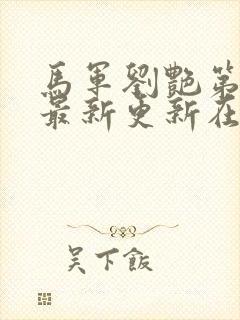 馬軍劉艷第
最新更新在
吴下飯